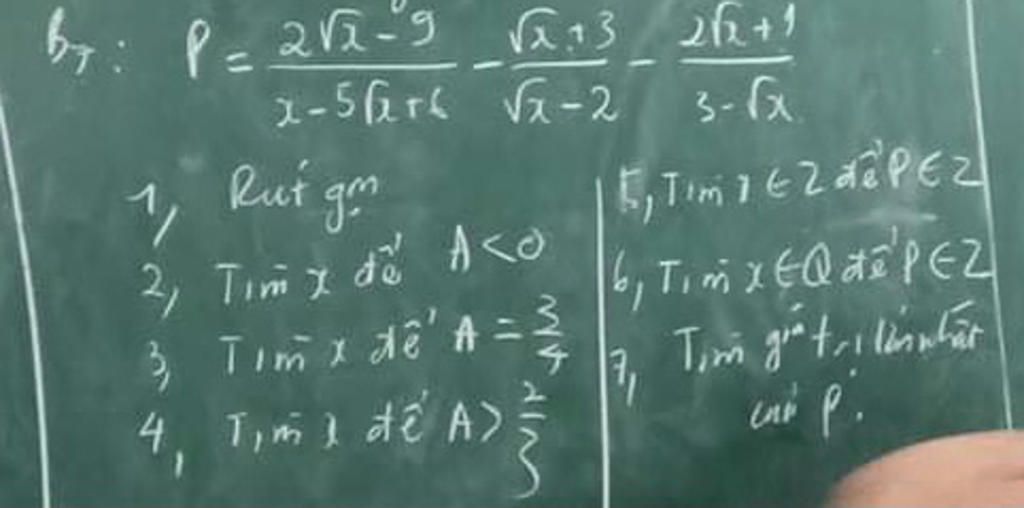 BT: P = \frac{2\sqrt{x} - 9}{x - 5\sqrt{x} + 6} - \frac{\sqrt{x} + 3}{\sqrt{x} - 2} - \frac{2\sqrt{x} + 1}{3 - \sqrt{x}}
1, Rút gọn
2, Tìm x để A < 0
3, Tìm x để A = \frac{3}{4}
4, Tìm x để A > \frac{2}{3}
5, Tìm x ∈ Z để P ∈ Z
6, Tìm x ∈ Q để P ∈ Z
7, Tìm giá trị lớn nhất
của P.